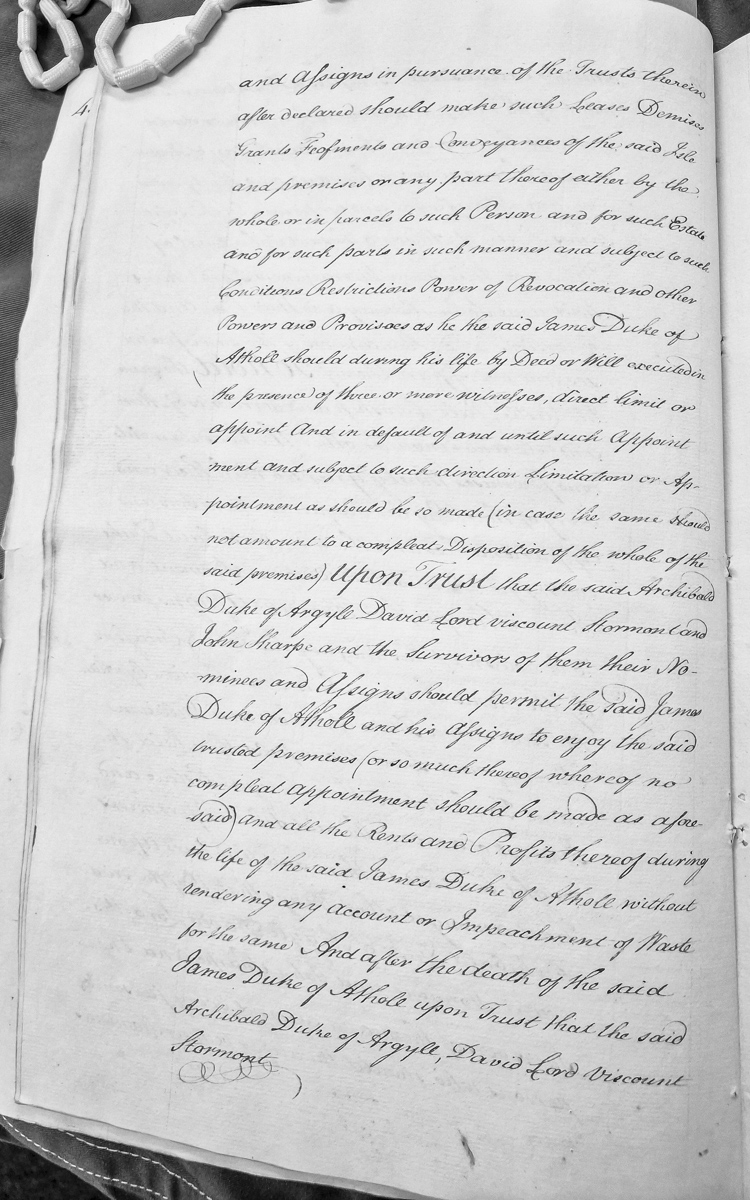 4.
and Assigns in pursuance of the Trusts therein
after declared should make such Leases Demises
Grants Feofments and Conveyances of the said Isle
and premises or any part thereof either by the
whole or in parcels to such Person and for such Estate
and for such parts in such manner and subject to such
Conditions Restrictions Power of Revocation and other
Powers and Provisoes as he the said James Duke of
Atholl should during his life by Deed or Will executed in
the presence of three or more witnesses, direct limit or
appoint And in default of and until such Appoint
ment and subject to such direction Limitation or Ap-
pointment as should be so made (in case the same should
not amount to a compleat Disposition of the whole of the
said premises) Upon Trust that the said Archibald
Duke of Argyle David Lord viscount Stormont and
John Sharpe and the Survivors of them their No-
minees and Assigns should permit the said James
Duke of Atholl and his Assigns to enjoy the said
trusted premises (or so much thereof whereof no
compleat appointment should be made as afore-
said) and all the Rents and Profits thereof during
the life of the said James Duke of Atholl without
rendering any account or Impeachment of Waste
for the same And after the death of the said
James Duke of Athole upon Trust that the said
Archibald Duke of Argyle, David Lord Viscount
Stormont